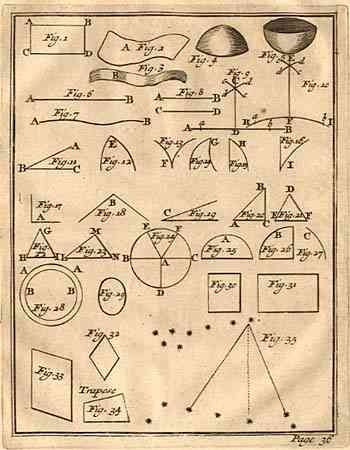 A B
Fig. 1
C D
A Fig. 2
B Fig. 3
Fig. 4
Fig. 9
C
E
Fig. 10
A Fig. 6 B
A Fig. 8 B
C D
A Fig. 7 B
A B
B Fig. 11 A C
E
Fig. 12
Fig. 13
F
Fig. 14
G
H
I
Fig. 17
A
B
Fig. 18
C Fig. 19
B
A Fig. 20 C
D
E Fig. 21 F
G
H
M
Fig. 23
N
E F
B A
D
A
Fig. 25
B
Fig. 26
C
Fig. 27
A A
B B
Fig. 28
Fig. 29
Fig. 30
Fig. 31
Fig. 32
Fig. 33
Trapeze
Fig. 34
Fig. 35
Page 36